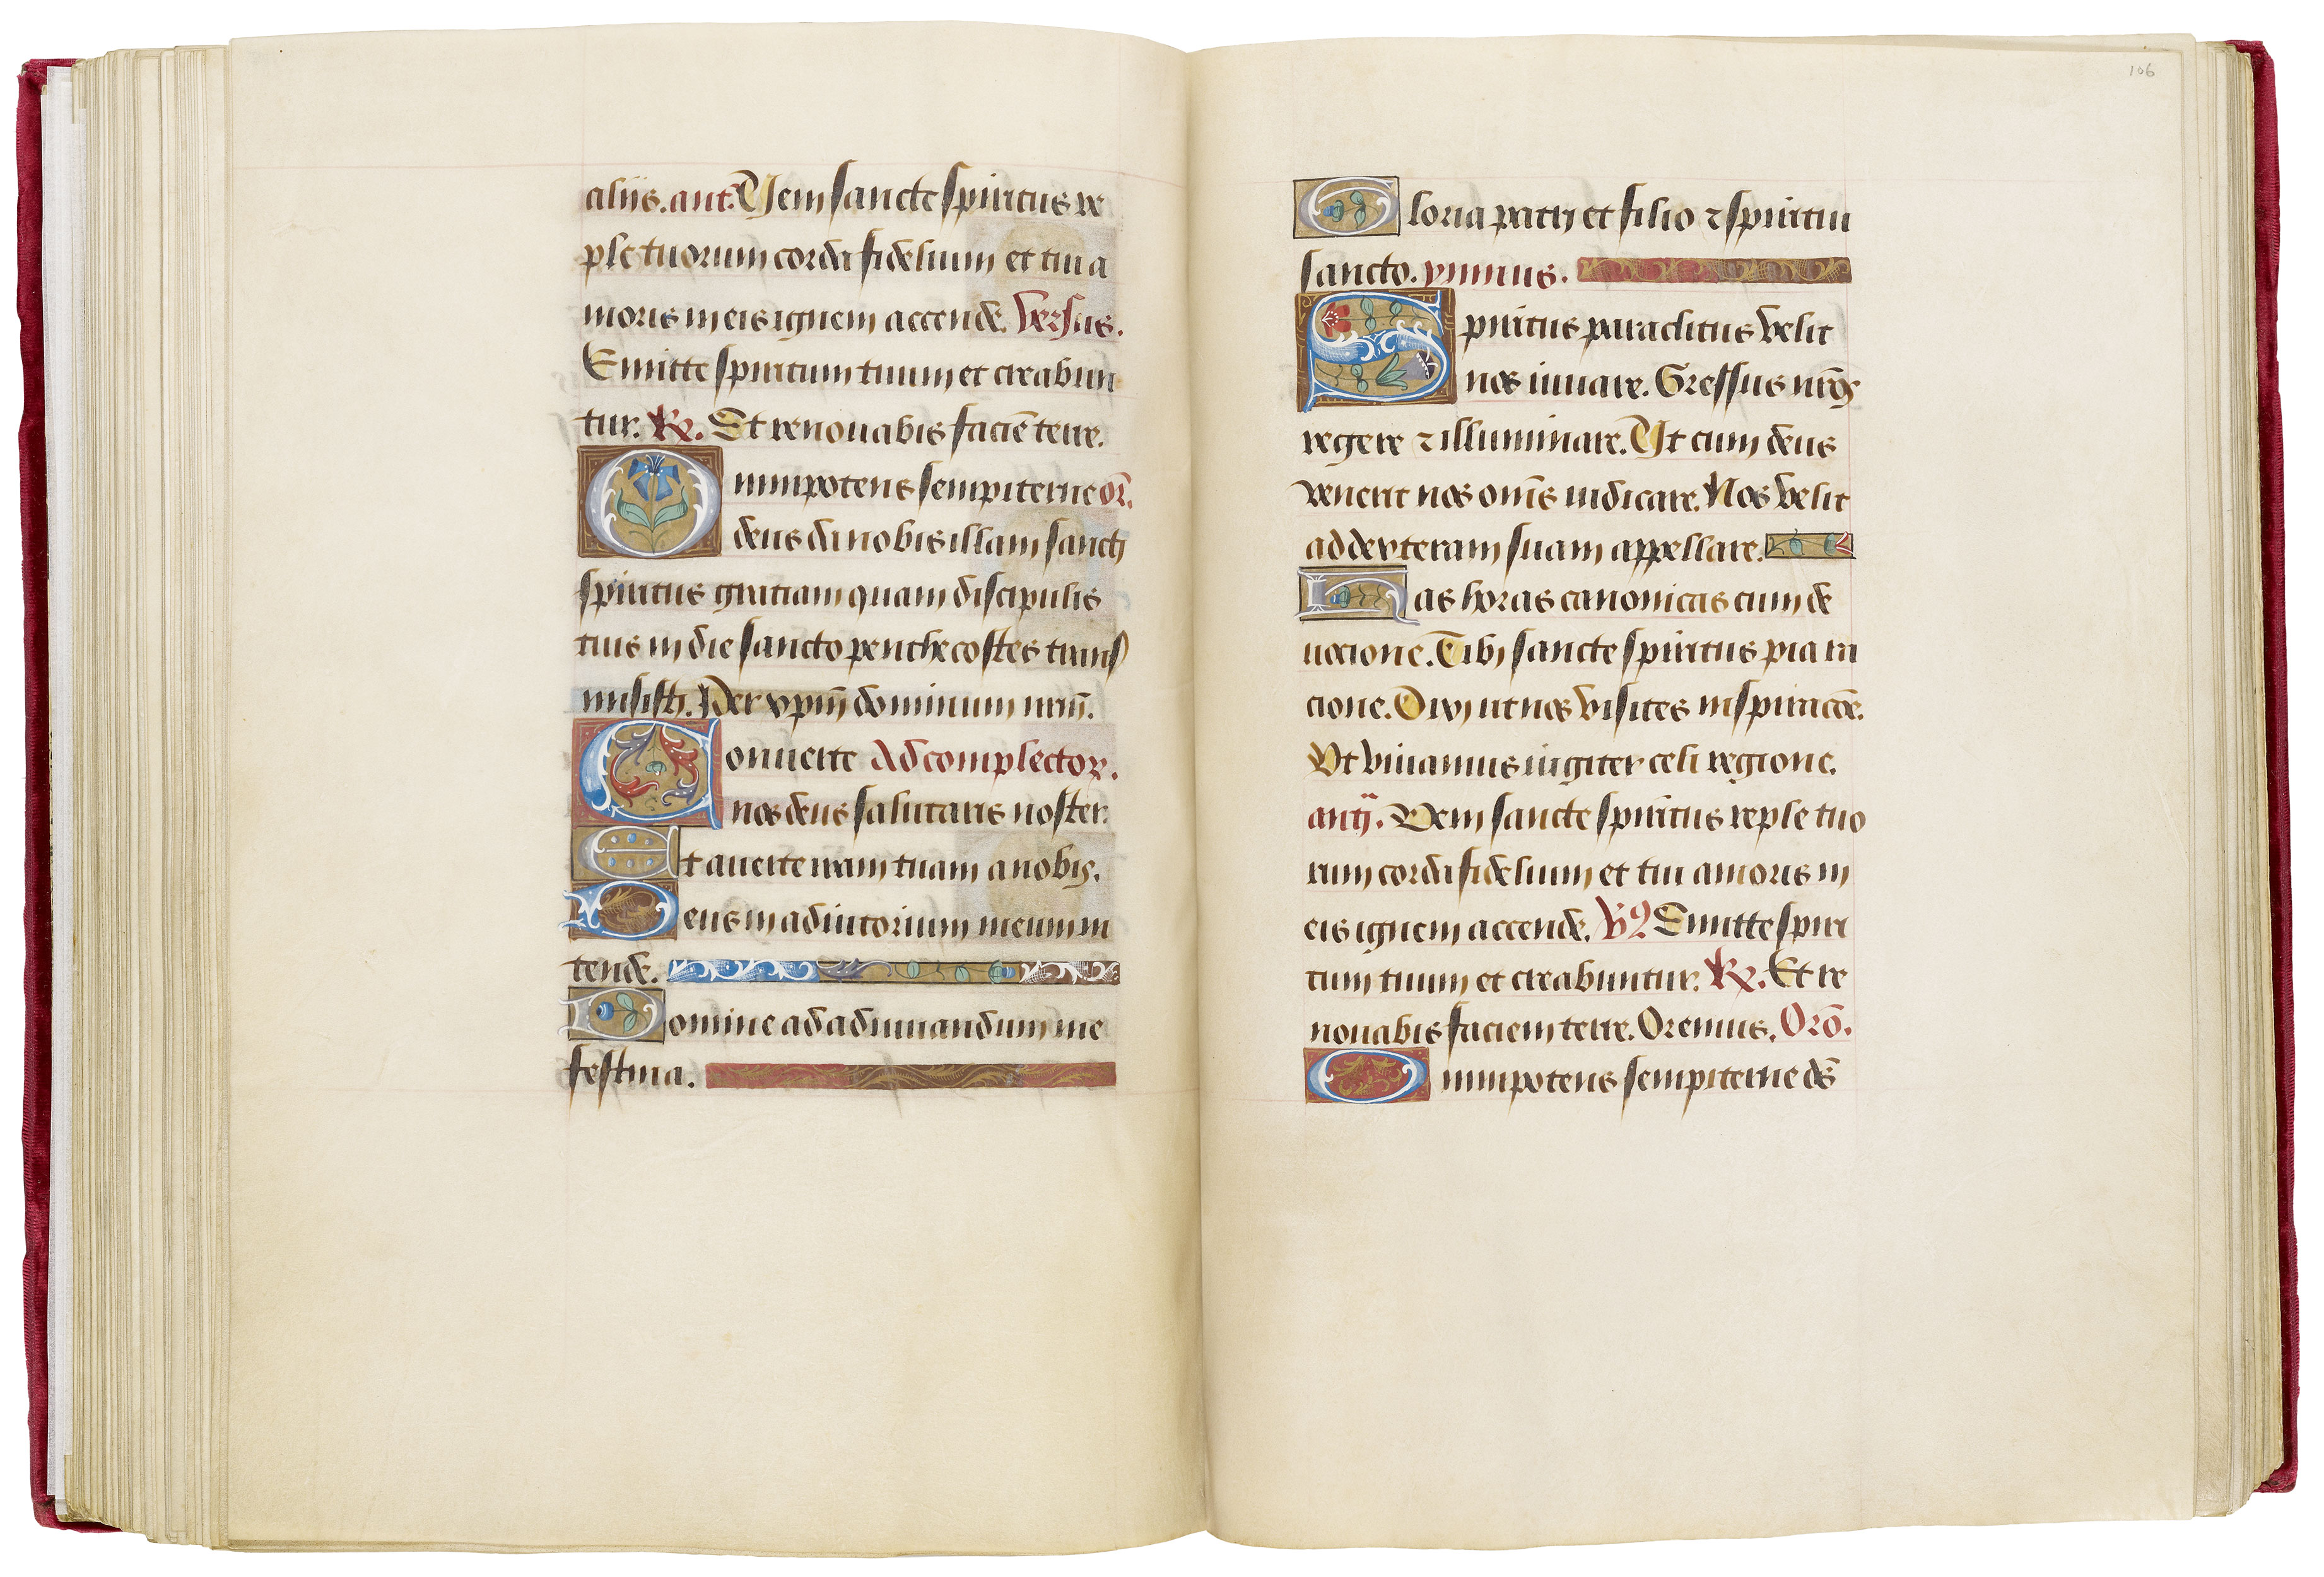 aliis. ant. Veni sancte spiritus re
ple tuorum corda fidelium et tui a
moris in eis ignem accende. Versus.
Emitte spiritum tuum et creabun
tur. R. Et renouabis faciē terre.
Omnipotens sempiterne or.
deus da nobis illam sancti
spiritus gratiam quam discipulis
tuis in die sancto penthecostes trans
misisti. Per xpm̄ dominum nrm̄.
Conuerte Ad complector.
nos deus salutaris noster.
Et auerte iram tuam a nobis.
Deus in adiutorium meum in
tende.
Domine ad adiuuandum me
festina.
106
Gloria patri et filio ⁊ spiritui
sancto. ymnus.
Spiritus paraclitus velit
nos iuuare. Gressus nr̄os
regere ⁊ illuminare. Ut cum deus
venerit nos om̄s iudicare. Nos velit
ad dexteram suam appellare.
Has horas canonicas cum de
uocione. Tibi sancte spiritus pia ra
cione. Dixi ut nos visites inspiracōe.
Ut viuamus iugiter celi regione.
Veni sancte spiritus reple tuo
rum corda fidelium et tui amoris in
eis ignem accende. Emitte spiri
tum tuum et creabuntur. R. Et re
nouabis faciem terre. Oremus. Orō.
Omnipotens sempiterne ds̄